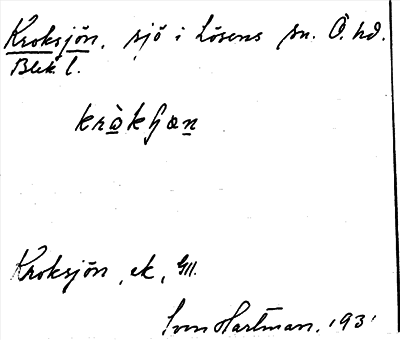 Kroksjön, sjö i Lösens sn. Ö. hd.
Blek. l.
Kroksjön, ek,
Sven Hartman, 1931